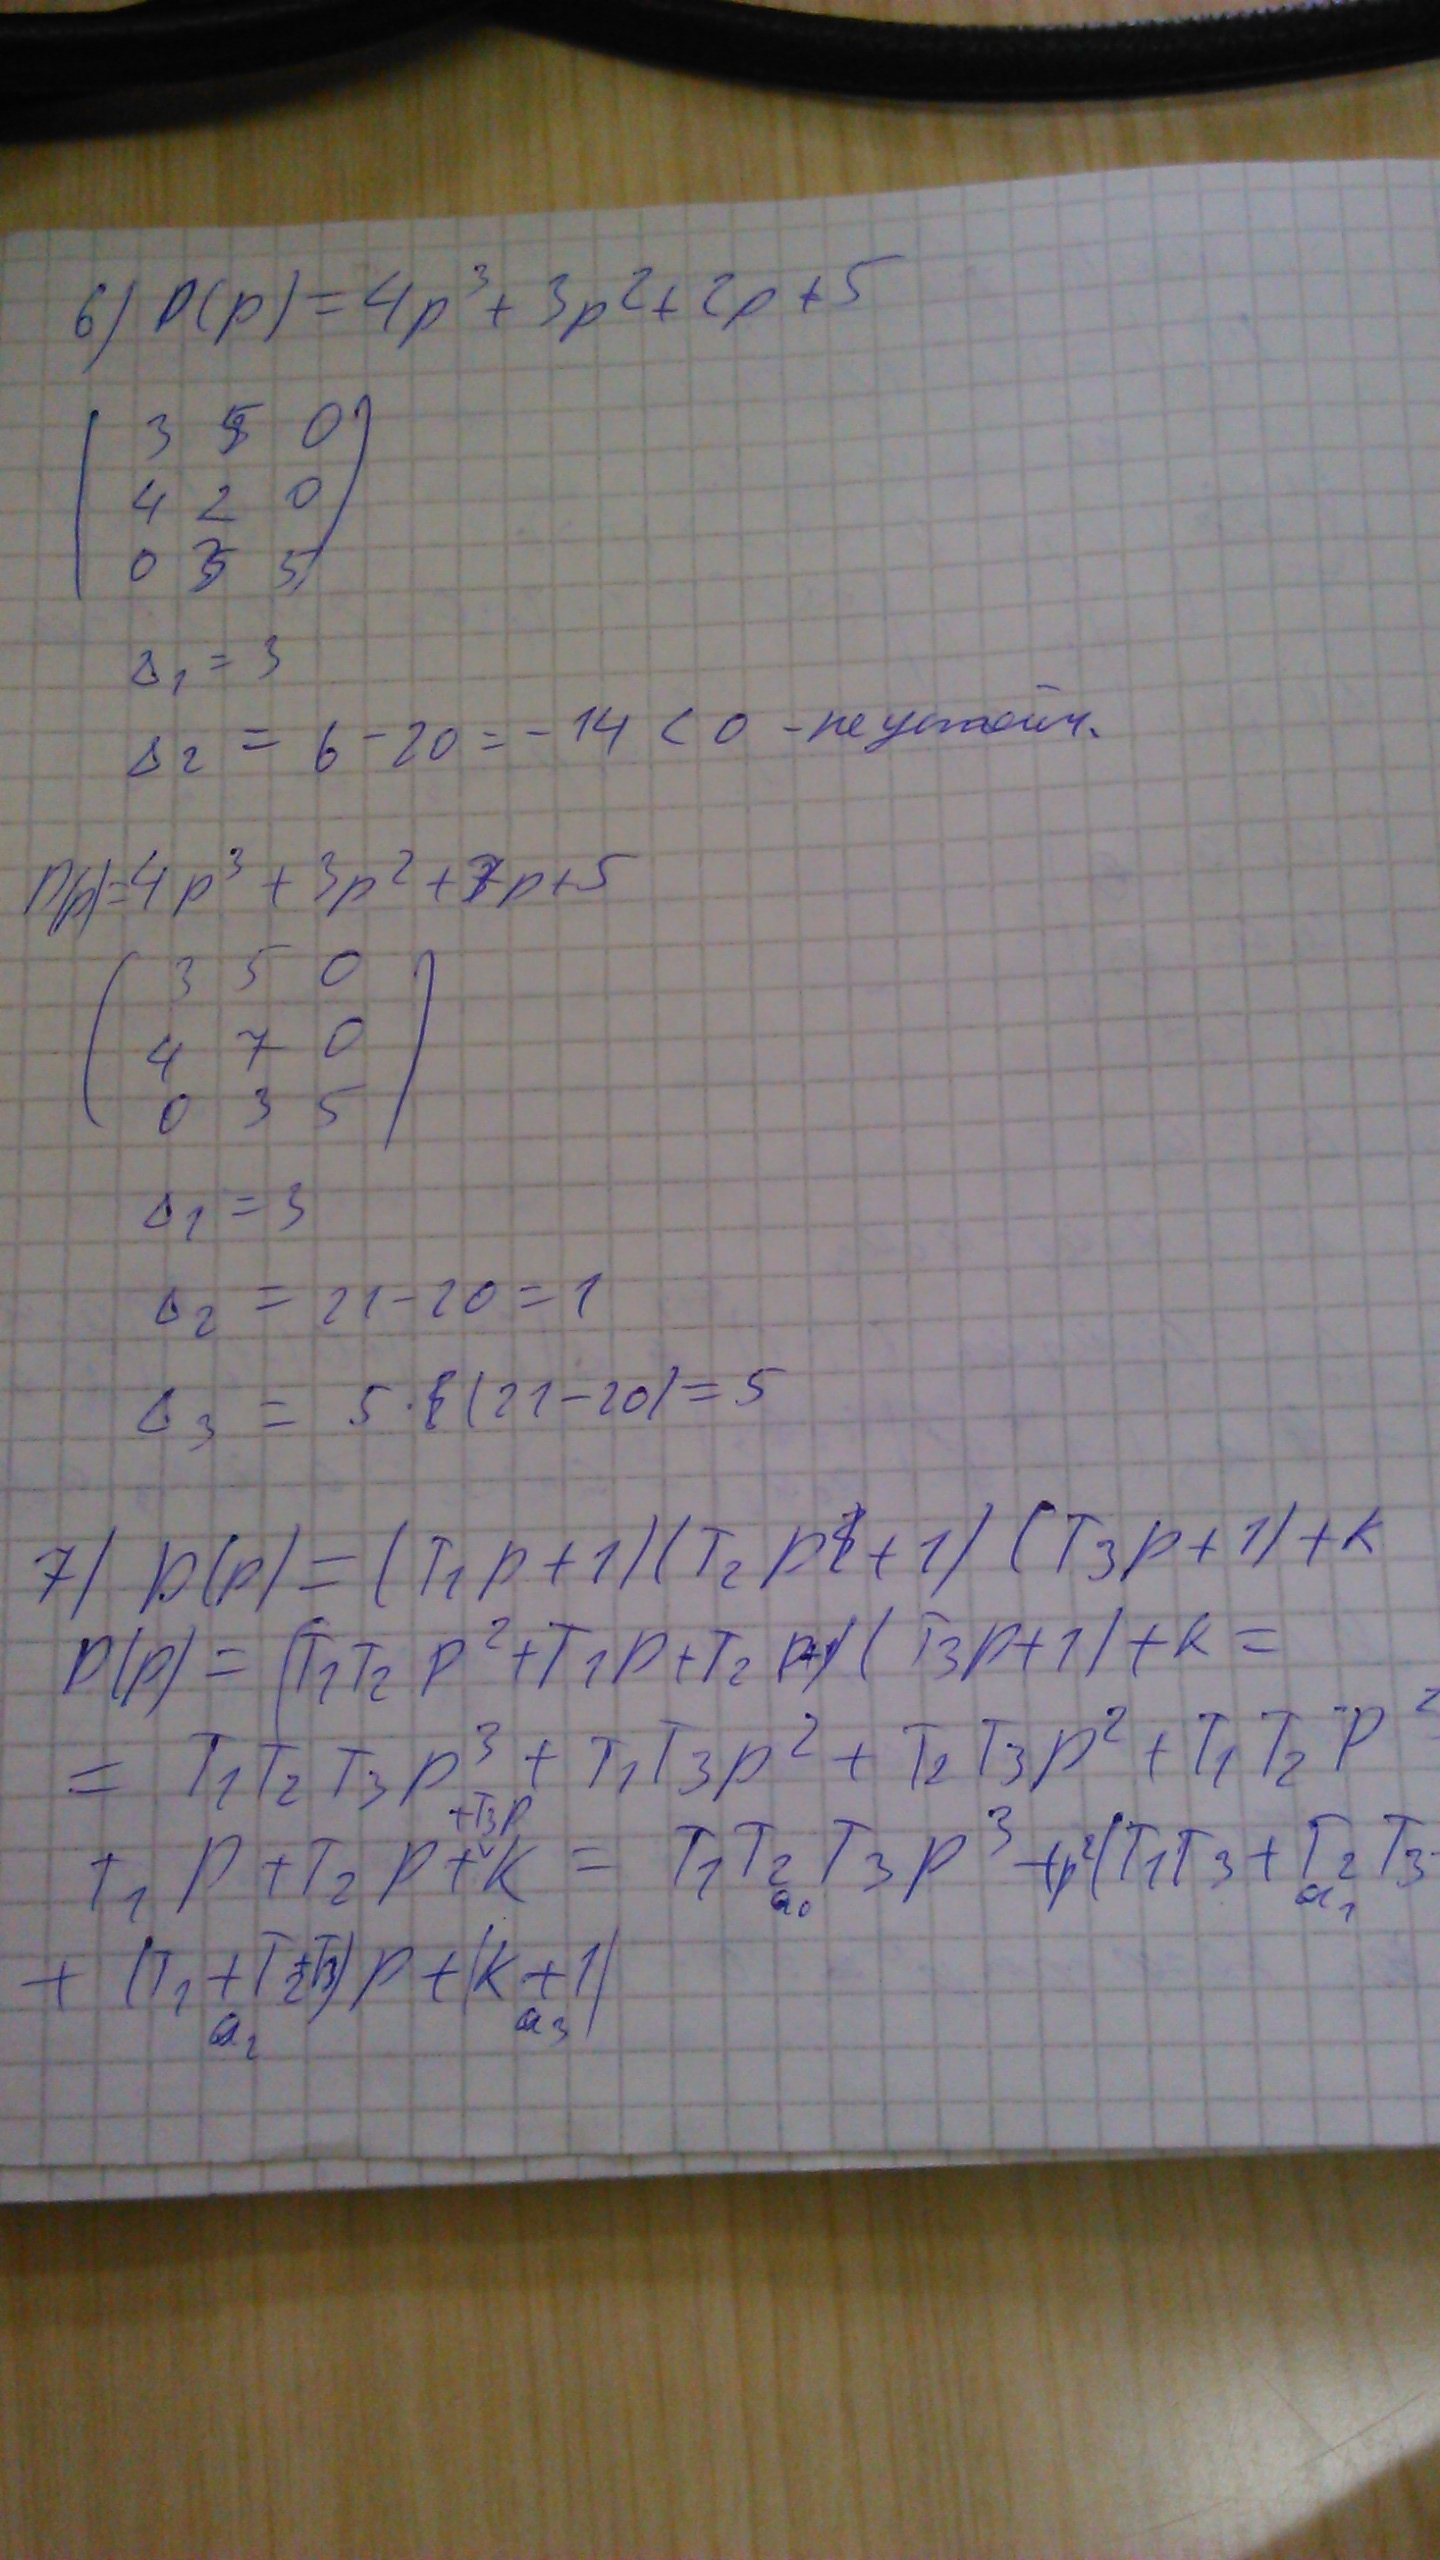 6) D(p)=4p³+3p²+2p+5
3 5 0
4 2 0
0 3 5
Δ₁=3
Δ₂ = 6-20=-14<0 -неустойч.
D(p)=4p³+3p²+7p+5
3 5 0
4 7 0
0 3 5
Δ₁=3
Δ₂ = 21-20=1
Δ₃ = 5·(21-20)=5
7) D(p)=(T₁p+1)(T₂p+1)(T₃p+1)+k
D(p)=(T₁T₂p²+T₁p+T₂p+1)(T₃p+1)+k=
= T₁T₂T₃p³+T₁T₃p²+T₂T₃p²+T₁T₂p²
+T₃p
T₁p+T₂p+k = T₁T₂T₃p³+p²(T₁T₃+T₂T₃
a₀ a₁
+(T₁+T₂+T₃)p+(k+1)
a₂ a₃